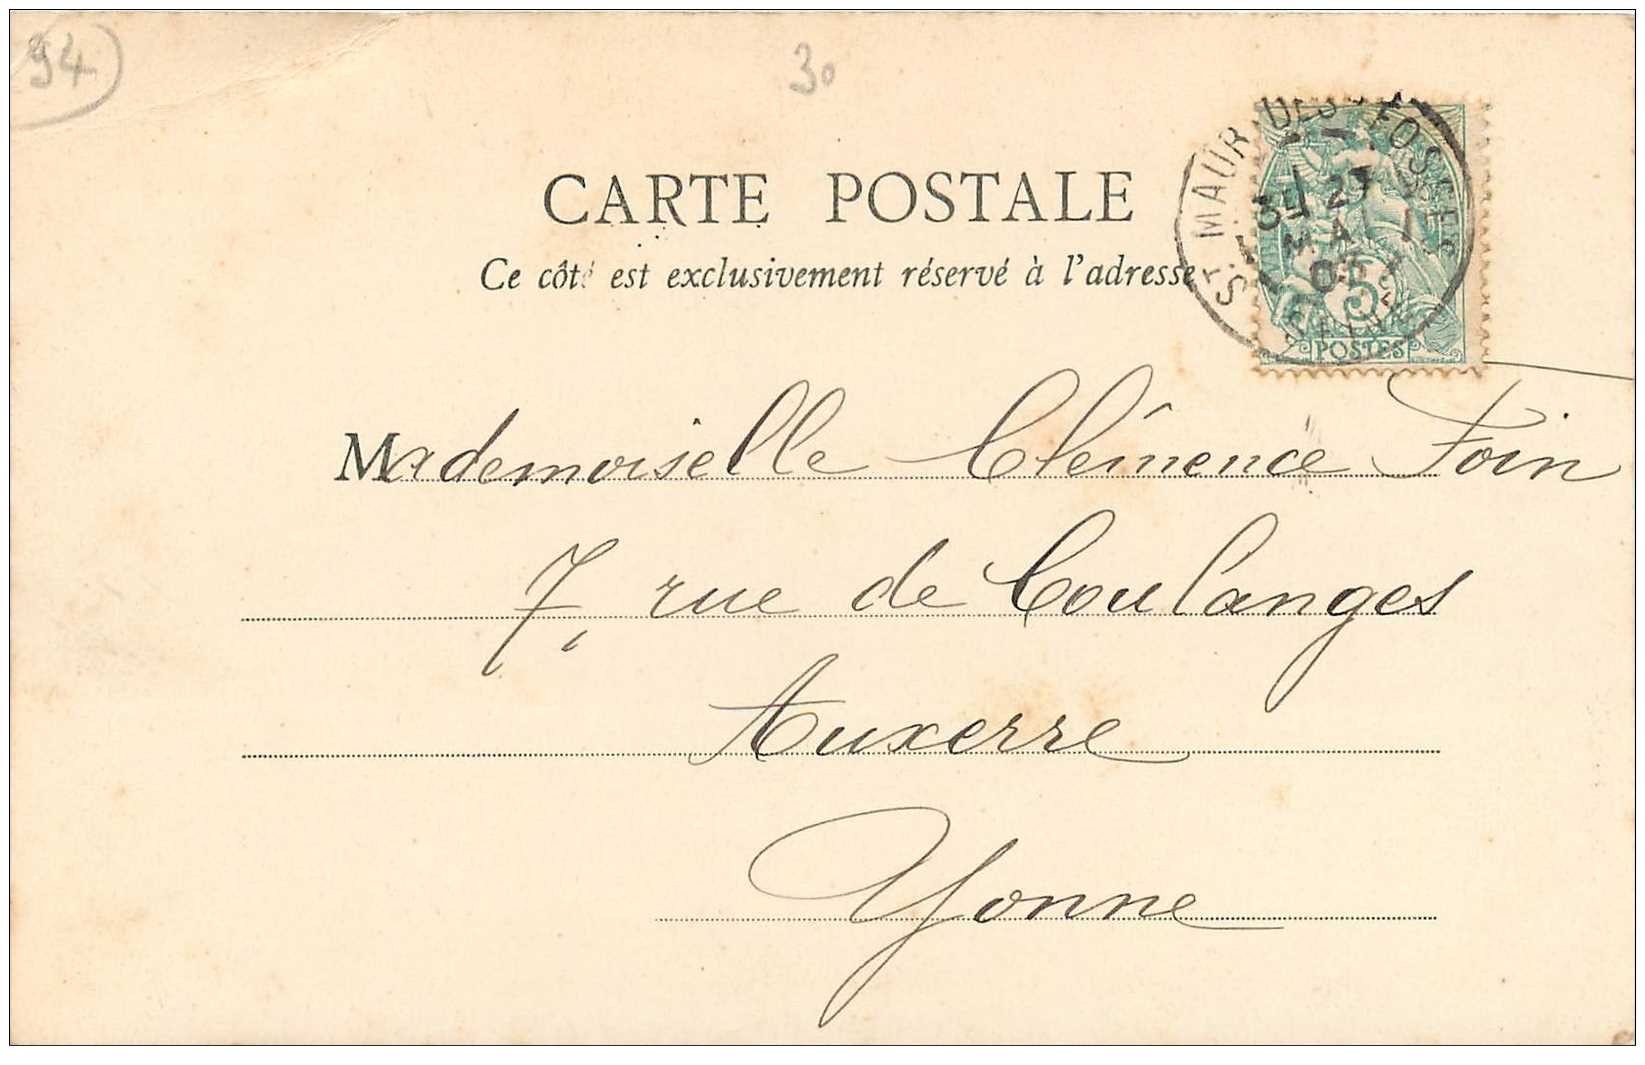 94
30
CARTE POSTALE
Ce côté est exclusivement réservé à l'adresse
ST MAUR DES FOSSÉS
3E 27
MAI
01
SEINE
5
POSTES
Mademoiselle Clémence Foin
7, rue de Coulanges
Auxerre
Yonne